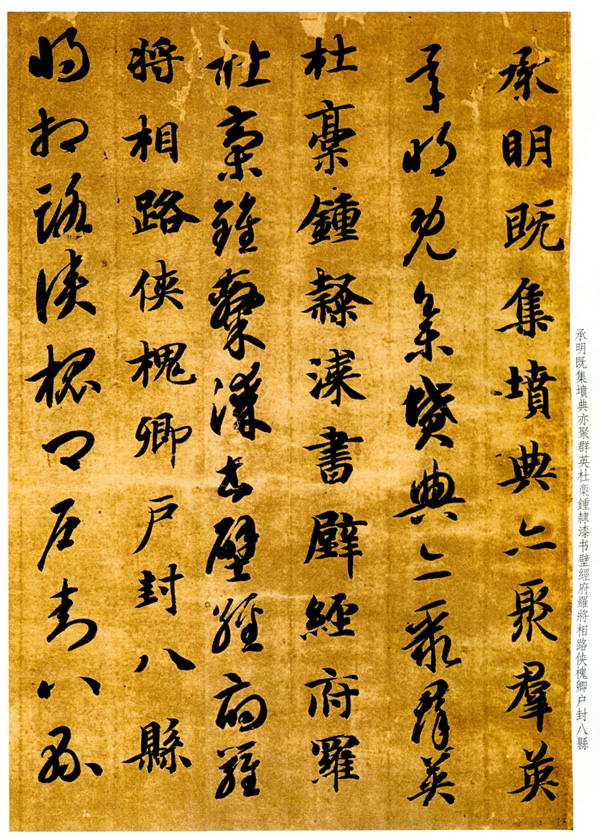 承明既集墳典亦聚群英杜稾鍾隸漆书壁經府羅將相路俠槐卿户封八縣
承明既集墳典亦聚羣英
承明既集墳典亦聚羣英
杜稾鍾隸漆書壁經府羅
杜稾鍾隸漆書壁經府羅
將相路俠槐卿戶封八縣
將相路俠槐卿戶封八縣